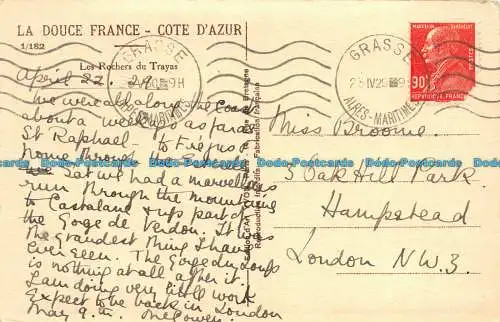 LA DOUCE FRANCE - COTE D'AZUR
1/182
Les Rochers du Trayas
April 22. 29
we were all along the coast
about a week ago as far as
St Raphael - to Frejus &
home through the
run. Sat we had a marvellous
run through the mountains
to Castellane & up part of
the Gorge de Verdon. It was
the grandest thing I have
ever seen. The Gorge du Loup
is nothing at all after it.
I am doing very little work
Expect to be back in London
May 9th.
GRASSE
ALPES-MARITIMES
GRASSE
23 IV 29
ALPES-MARITIMES
90c
REPUBLIQUE FRANCAISE
Miss Broome.
5 Oak Hill Park
Hampstead
London N.W.3
Postcards